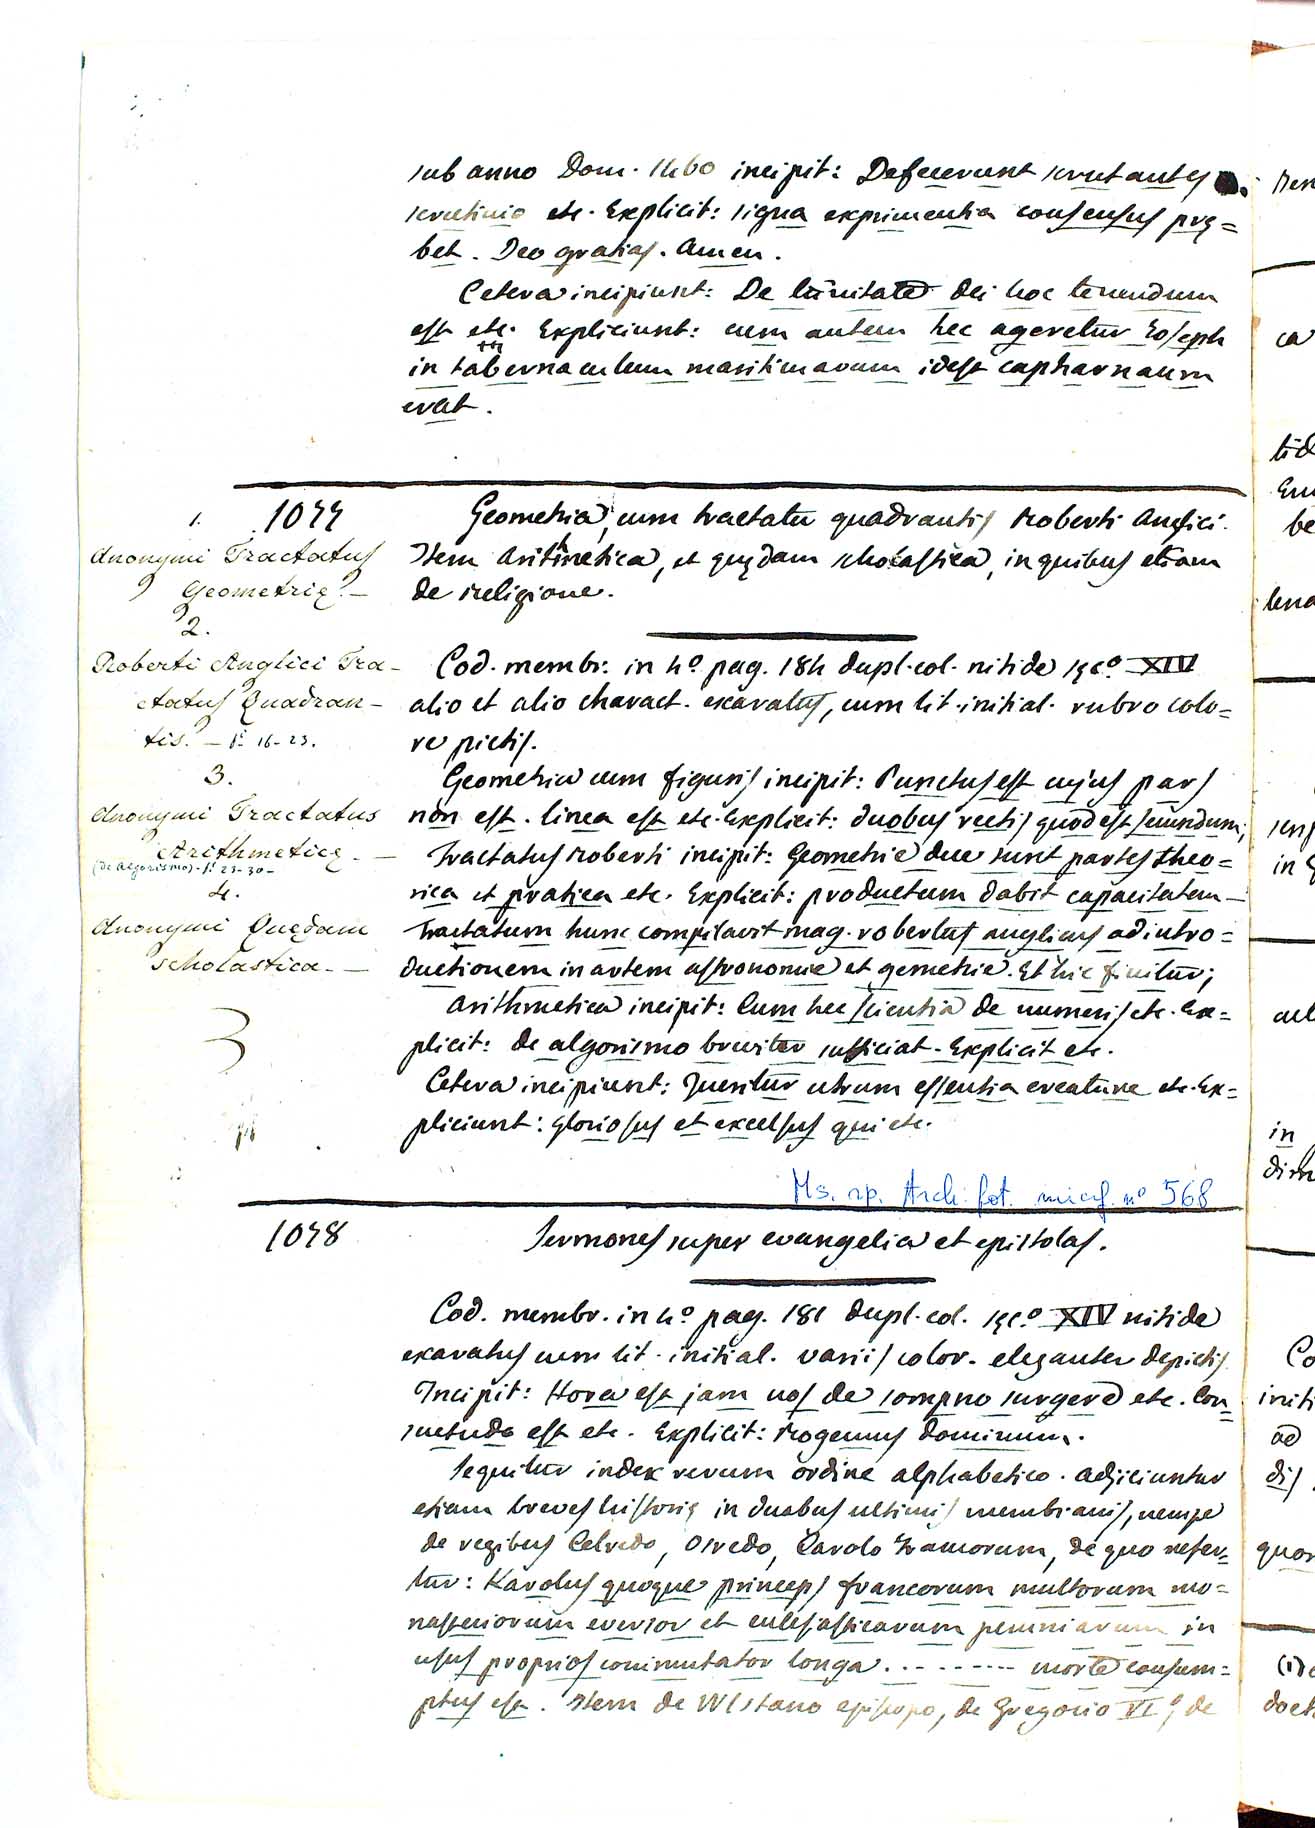 sub anno Dom. 1460 incipit: Defecerunt scrutantes
scrutinio etc. Explicit: signa exprimentia consensus prę=
bet. Deo gratias. Amen.
Cetera incipiunt: De trinitate dei hoc tenendum
est etc. Expliciunt: cum autem hec ageretur Ioseph
in tabernaculum maritimarum idest capharnaum
erat.
1077
Geometria, cum tractatu quadrantis Roberti Anglici.
Item Arithmetica, et quędam scholastica, in quibus etiam
de religione.
1.
Anonymi Tractatus
Geometrię. —
2.
Roberti Anglici Tra-
ctatus Quadran-
tis. — f. 16-23.
3.
Anonymi Tractatus
Arithmeticę. —
(De Algorismo) - f. 23-30 -
4.
Anonymi Quędam
scholastica. —
3
Cod. membr. in 4º pag. 184 dupl. col. nitide sęcº XIV
alio et alio charact. exaratus, cum lit. initial. rubro colo=
re pictis.
Geometria cum figuris incipit: Punctus est cujus pars
non est. linea est etc. Explicit: duobus rectis quod est secundum;
Tractatus Roberti incipit: Geometrie due sunt partes theo=
rica et pratica etc. Explicit: productum dabit capacitatem —
Tractatum hunc compilavit mag. robertus anglicus ad intro=
ductionem in artem astronomie et gemetrie. Et hic finitur;
Arithmetica incipit: Cum hec scientia de numeris etc. Ex=
plicit: de algorismo breviter sufficiat. Explicit etc.
Cetera incipiunt: Queritur utrum essentia creature etc. Ex=
pliciunt: Gloriosus et excelsus qui etc.
Ms. rp. Arch. fot. micrf. nº 568
1078
Sermones super evangelia et epistolas.
Cod. membr. in 4º pag. 181 dupl. col. sęc.º XIV nitide
exaratus cum lit. initial. variis color. eleganter depictis.
Incipit: Hora est jam nos de sompno surgere etc. Con=
suetudo est etc. Explicit: Rogemus dominum.
Sequitur index rerum ordine alphabetico. adjiciuntur
etiam breves historię in duobus ultimis membranis, nempe
de regibus Celredo, Osredo, Carolo Francorum, de quo refer=
tur: Karolus quoque princeps francorum multorum mo=
nasteriorum eversor et ecclesiasticarum pecuniarum in
usus proprios commutator longa . . - - - - - - - morte consum=
ptus est. Item de Wlstano episcopo, de Gregorio VIº, de